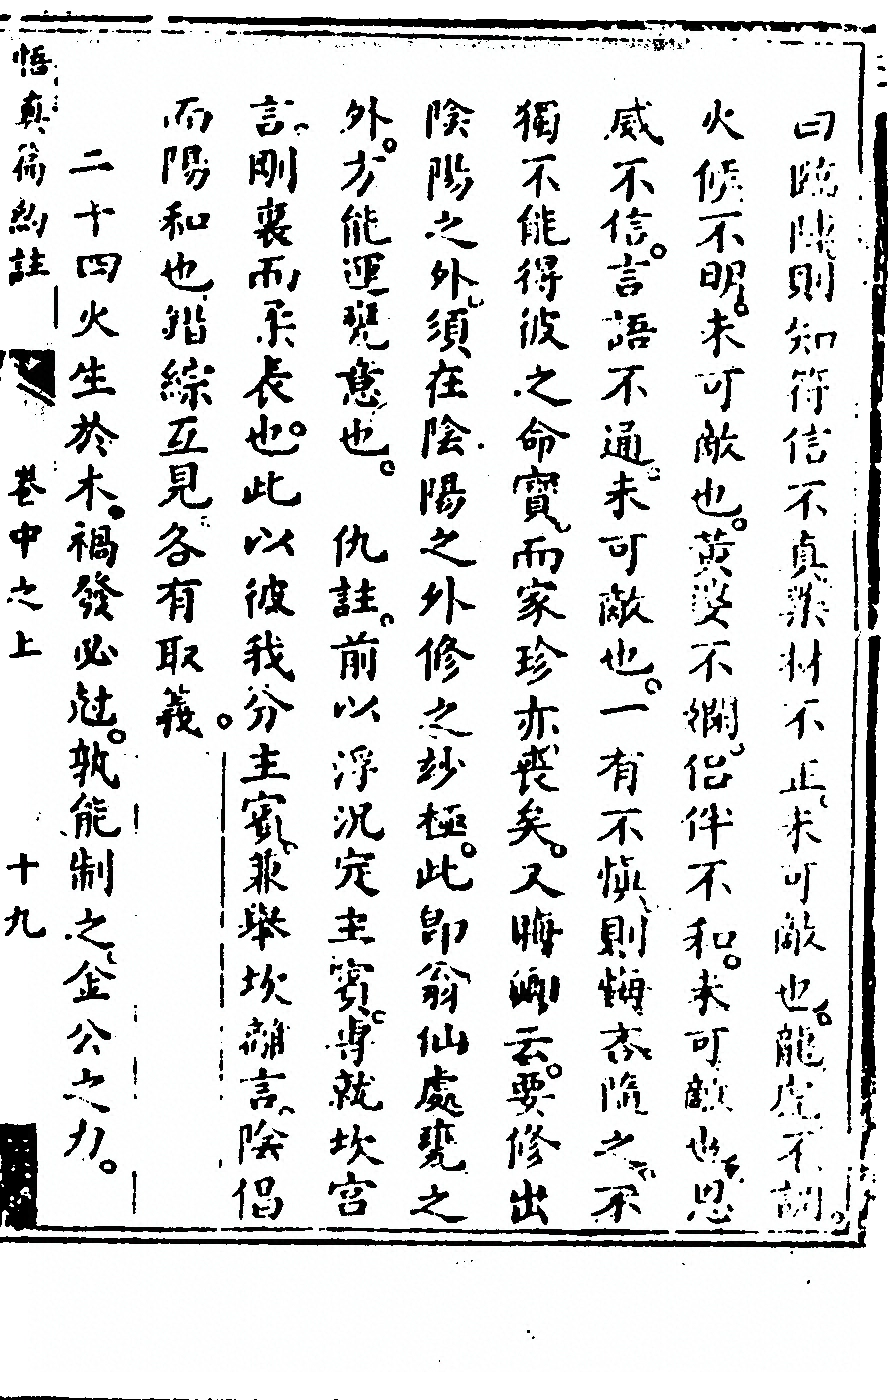 曰臨陣則知符信不真藥材不正未可敵也龍虎不調。
火候不明。未可敵也。黃婆不嫻。侶伴不和。未可敵也恩
威不信。言語不通。未可敵也。一有不慎則悔吝隨之不
獨不能得彼之命寶而家珍亦喪矣。又晦卿云。要修出
陰陽之外須在陰陽之外修之玅極。此卽翁仙處甕之
外。方能運甕意也。 仇註。前以浮沉定主賓。專就坎宮
言剛喪而柔長也。此以彼我分主賓兼舉坎離言陰侶
而陽和也錯綜互見各有取義。
二十四火生於木。禍發必尅。孰能制之金公之力。
悟真篇約註 卷中之上 十九